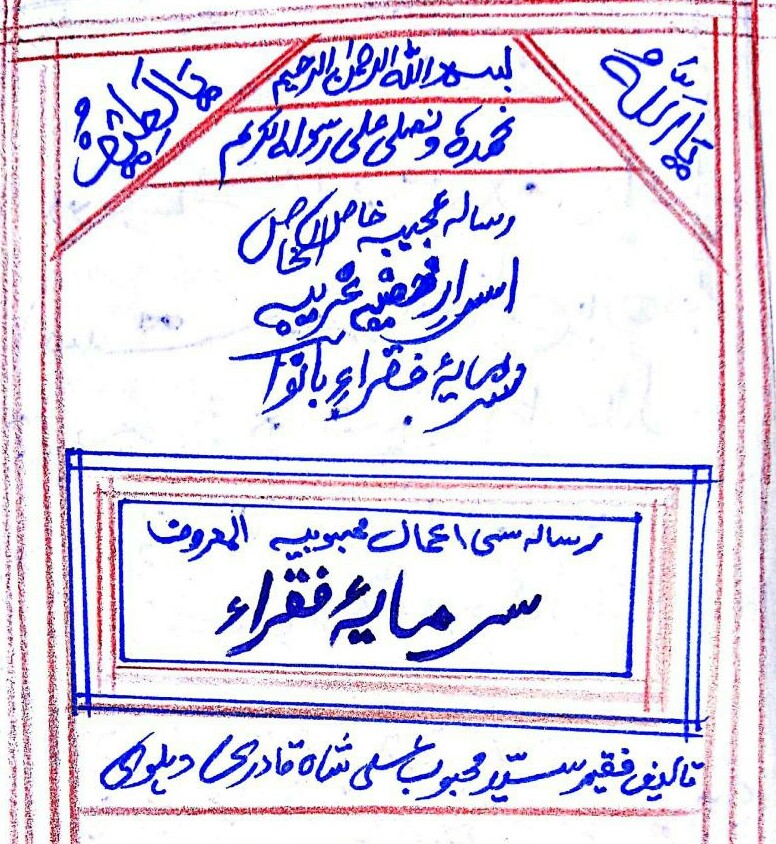 یا اللہ
یا لطیف
بسم اللہ الرحمن الرحیم
نحمدہ و نصلی علی رسولہ الکریم
رسالہ عجیبہ خاص الخاص
اسرارِ غریبہ
سرمایۂ فقراءِ بانوا
رسالہ سی اعمال محبوبیہ المعروف
سرمایۂ فقراء
تالیف فقیر سیّد محبوب علی شاہ قادری دہلوی